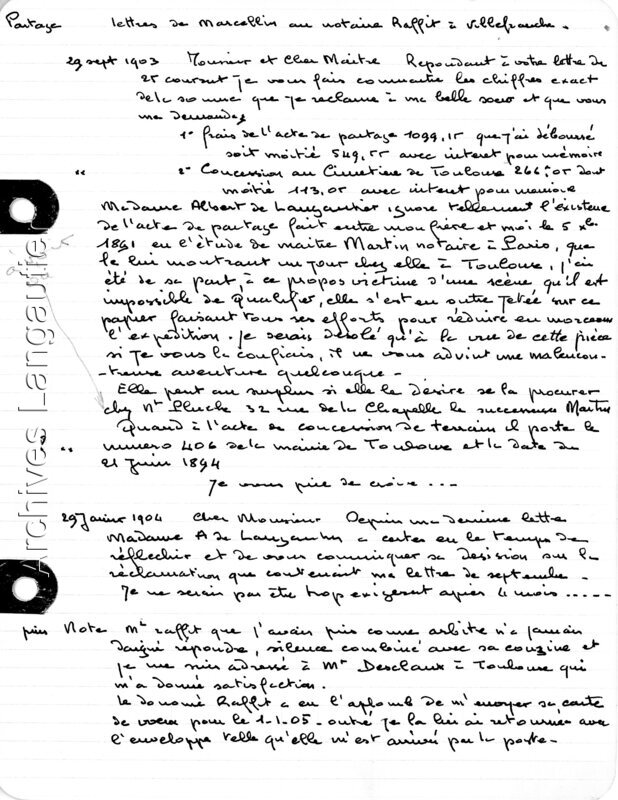 Partage lettres de Marcellin au notaire Raffit à Villefranche.
29 sept 1903 Monsieur et Cher Maitre Repondant à votre lettre de
25 courant je vous fais connaitre les chiffres exact
de la somme que je reclame à ma belle soeur et que vous
me demandez
1° frais de l'acte de partage 1099,15 que j'ai déboursé
soit moitié 549,55 avec interet pour mémoire
" 2° Concession au Cimetière de Toulouse 266,05 dont
moitié 113,05 avec interet pour memoire
Madame Albert de Langautier ignore tellement l'existence
de l'acte de partage fait entre mon frère et moi le 5 xbre
1891 en l'étude de maitre Martin notaire à Paris, que
le lui montrant un jour chez elle à Toulouse, j'ai
été de sa part, à ce propos victime d'une scène, qu'il est
impossible de qualifier, elle s'est en outre jetée sur ce
papier faisant tous ses efforts pour réduire en morceaux
l'expédition. Je serais désolé qu'à la vue de cette pièce
si je vous la confiais, il ne vous advint une malencon-
treuse aventure quelconque -
Elle peut au surplus si elle le désire se la procurer
chez Mt Pluche 32 rue de la Chapelle le successeur Martin
Quand à l'acte de concession de terrain il porte le
" numero 406 de la mairie de Toulouse et la date du
21 Juin 1894
Je vous prie de croire ...
29 Janvier 1904 Cher Monsieur Depuis ma dernière lettre
Madame A de Langautier a certes eu le temps de
réflechir et de vous communiquer sa desision sur la
réclamation que contenait ma lettre de septembre -
Je ne serais pas être trop exigeant après 4 mois .....
puis Note Mt raffit que j'avais pris comme arbitre n'a jamais
daigné répondre, silence combiné avec sa couzine et
je me suis adressé à Mr Desclaux à Toulouse qui
m'a donné satisfaction.
le Raffit a eu l'aplomb de m'envoyer sa carte
de voeux pour le 1-1-05 - outré je la lui ai retournée avec
l'enveloppe telle qu'elle m'est arrivée par la poste -
Archives Langautier